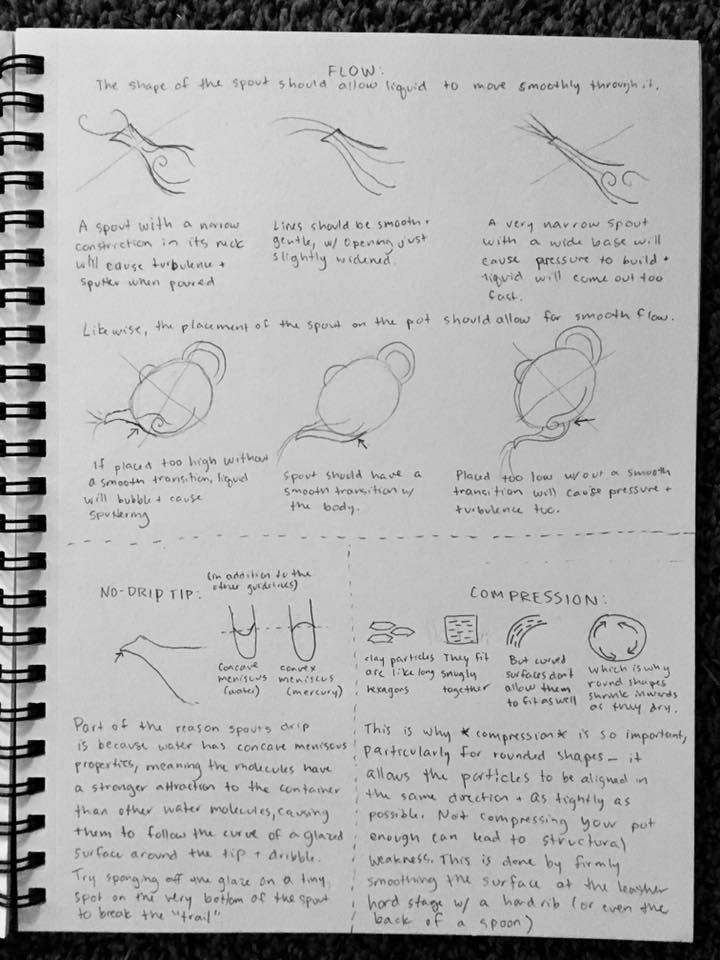 FLOW:
The shape of the spout should allow liquid to move smoothly through it.
A spout with a narrow
constriction in its neck
will cause turbulence +
sputter when poured
Lines should be smooth +
gentle, w/ opening just
slightly widened.
A very narrow spout
with a wide base will
cause pressure to build +
liquid will come out too
fast.
Likewise, the placement of the spout on the pot should allow for smooth flow.
If placed too high without
a smooth transition, liquid
will bubble + cause
sputtering
Spout should have a
smooth transition w/
the body.
Placed too low w/out a smooth
transition will cause pressure +
turbulence too.
NO-DRIP TIP:
(in addition to the
other guidelines)
concave
meniscus
(water)
convex
meniscus
(mercury)
Part of the reason spouts drip
is because water has concave meniscus
properties, meaning the molecules have
a stronger attraction to the container
than other water molecules, causing
them to follow the curve of a glazed
surface around the tip + dribble.
Try sponging off the glaze on a tiny
spot on the very bottom of the spout
to break the "trail"
COMPRESSION:
clay particles
are like long
hexagons
They fit
snugly
together
But curved
surfaces don't
allow them
to fit as well
which is why
round shapes
shrink inwards
as they dry.
This is why *compression* is so important,
particularly for rounded shapes — it
allows the particles to be aligned in
the same direction + as tightly as
possible. Not compressing your pot
enough can lead to structural
weakness. This is done by firmly
smoothing the surface at the leather
hard stage w/ a hard rib (or even the
back of a spoon)